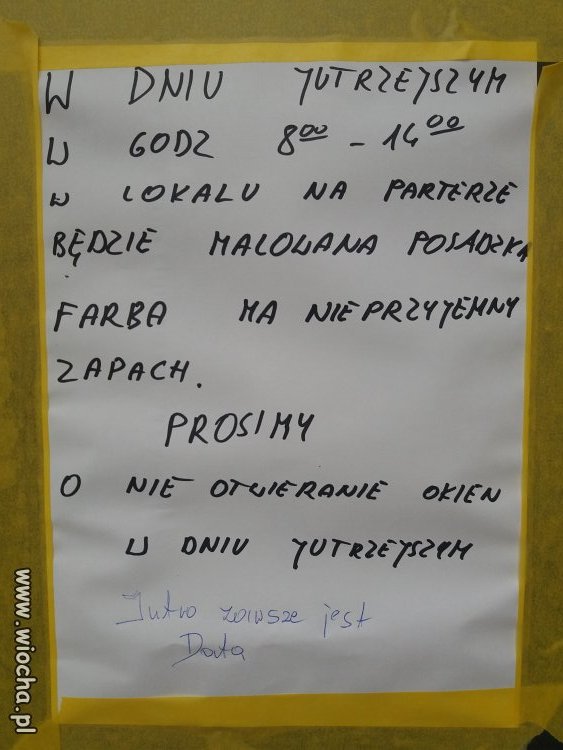 W DNIU JUTRZEJSZYM
W GODZ 8⁰⁰ - 14⁰⁰
W LOKALU NA PARTERZE
BĘDZIE MALOWANA POSADZKA
FARBA MA NIEPRZYJEMNY
ZAPACH.
PROSIMY
O NIE OTWIERANIE OKIEN
W DNIU JUTRZEJSZYM
Jutro zawsze jest
Data
www.wiocha.pl